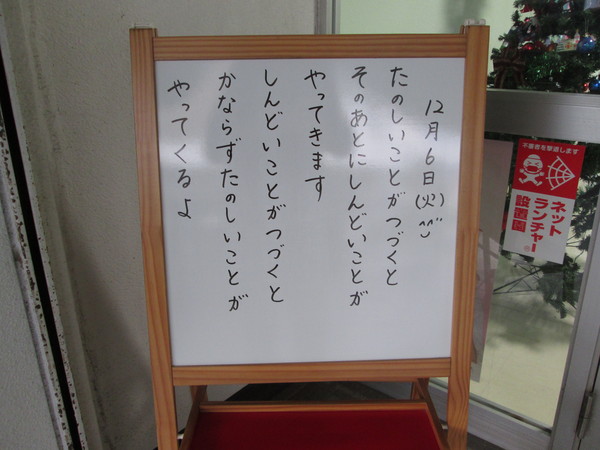 12月6日(火)^^
たのしいことがつづくと
そのあとにしんどいことが
やってきます
しんどいことがつづくと
かならずたのしいことが
やってくるよ
不審者を撃退します
ネット
ランチャー
設置園